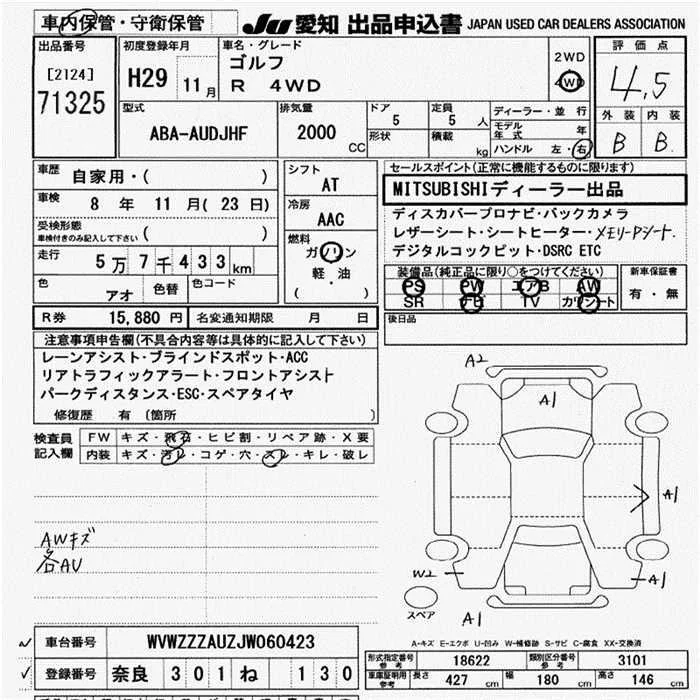 車内保管・守衛保管
JU 愛知 出品申込書 JAPAN USED CAR DEALERS ASSOCIATION
出品番号
[2124]
71325
初度登録年月
H29 11 月
車名・グレード
ゴルフ
R 4WD
2WD
4WD
評価点
4.5
外装 内装
B B
型式
ABA-AUDJHF
排気量
2000 CC
ドア
5
定員
5 人
形状
積載
kg
ディーラー・並行
モデル年式 年
ハンドル 左・右
車歴
自家用・( )
車検
8 年 11 月( 23 日)
受検形態
車検付きのみ記入して下さい ( )
走行
5万 7千 4 3 3 km
色
アオ
色替
色コード
シフト
AT
冷房
AAC
燃料
ガソリン
軽・油
( )
セールスポイント(正常に機能するものに限ります)
MITSUBISHIディーラー出品
ディスカバープロナビ・バックカメラ
レザーシート・シートヒーター・メモリーPシート.
デジタルコックピット・DSRC ETC
装備品(純正品に限り○をつけてください)
PS PW エアB AW
SR ナビ TV カワシート
新車保証書
有・無
R券 15,880 円 名変通知期限 月 日
後日品
注意事項申告欄(不具合内容等は具体的に記入して下さい)
レーンアシスト・ブラインドスポット・ACC
リアトラフィックアラート・フロントアシスト
パークディスタンス・ESC・スペアタイヤ
修復歴 有 (箇所 )
検査員記入欄
FW キズ・飛石・ヒビ割・リペア跡・X要
内装 キズ・汚レ・コゲ・穴・スレ・キレ・破レ
AWキズ
各AU
A2
A1
A1
W2
A1
スペア
A1
A-キズ E-エクボ U-凹み W-補修跡 S-サビ C-腐食 XX-交換済
車台番号 WVWZZZAUZJW060423
登録番号 奈良 301 ね 130
形式指定番号参考 18622 類別区分番号参考 3101
車庫証明用参考 長さ 427 cm 幅 180 cm 高さ 146 cm